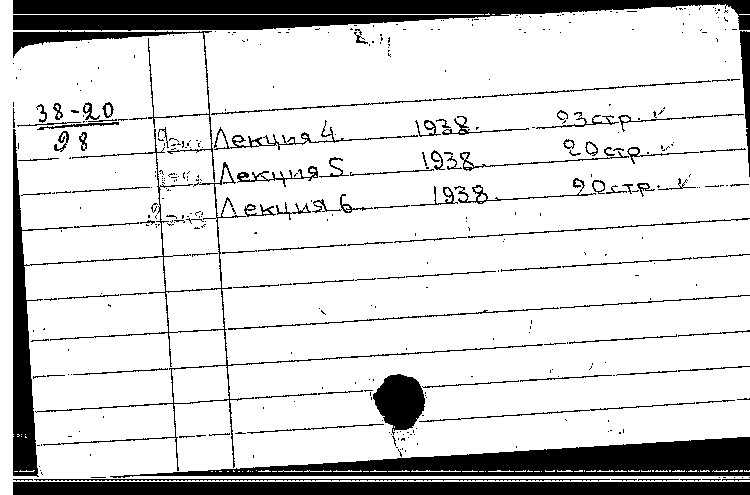 2.
38-20
98
2экз Лекция 4. 1938. 23стр. ✓
1экз Лекция 5. 1938. 20стр. ✓
2экз Лекция 6. 1938. 20стр. ✓